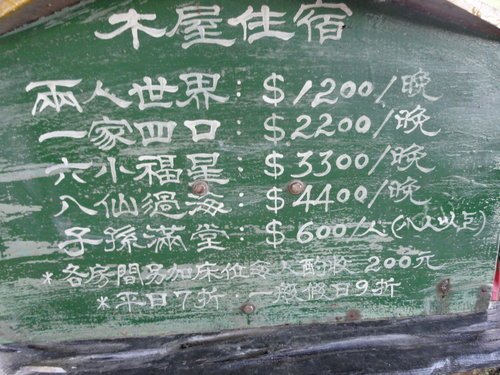 木屋住宿
兩人世界：$1200/晚
一家四口：$2200/晚
六小福星：$3300/晚
八仙過海：$4400/晚
子孫滿堂：$600/人(八人以上)
*各房間另加床位每人酌收 200元
*平日7折 一般假日9折